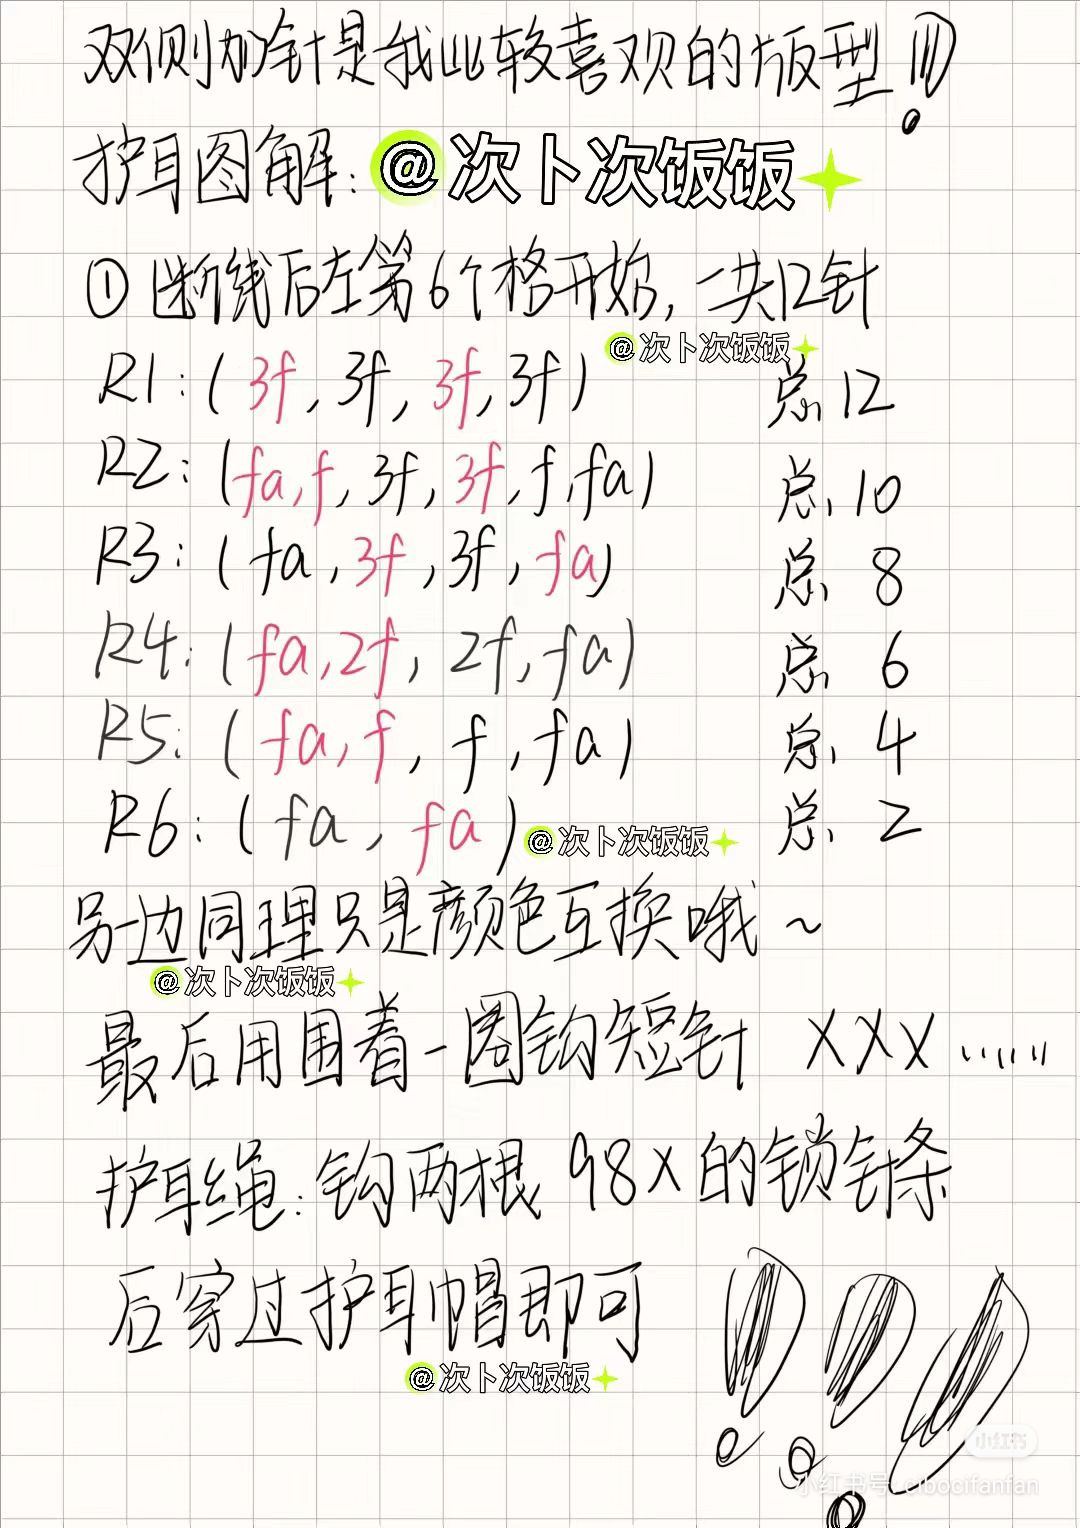 双侧加针是我比较喜欢的版型!!!
护耳图解: @次卜次饭饭
① 断线后左第6个格开始, 一共12针
@次卜次饭饭
R1: ( 3f, 3f, 3f, 3f ) 总 12
R2: (fa, f, 3f, 3f, f, fa) 总 10
R3: ( fa, 3f, 3f, fa) 总 8
R4: (fa, 2f, 2f, fa) 总 6
R5: (fa, f, f, fa) 总 4
R6: (fa, fa) 总 2
@次卜次饭饭
另一边同理只是颜色互换哦~
@次卜次饭饭
最后用围着一圈钩短针 XXX ......
护耳绳: 钩两根 98X的锁针条
后穿过护耳帽即可
@次卜次饭饭
小红书
小红书号: cibocifanfan